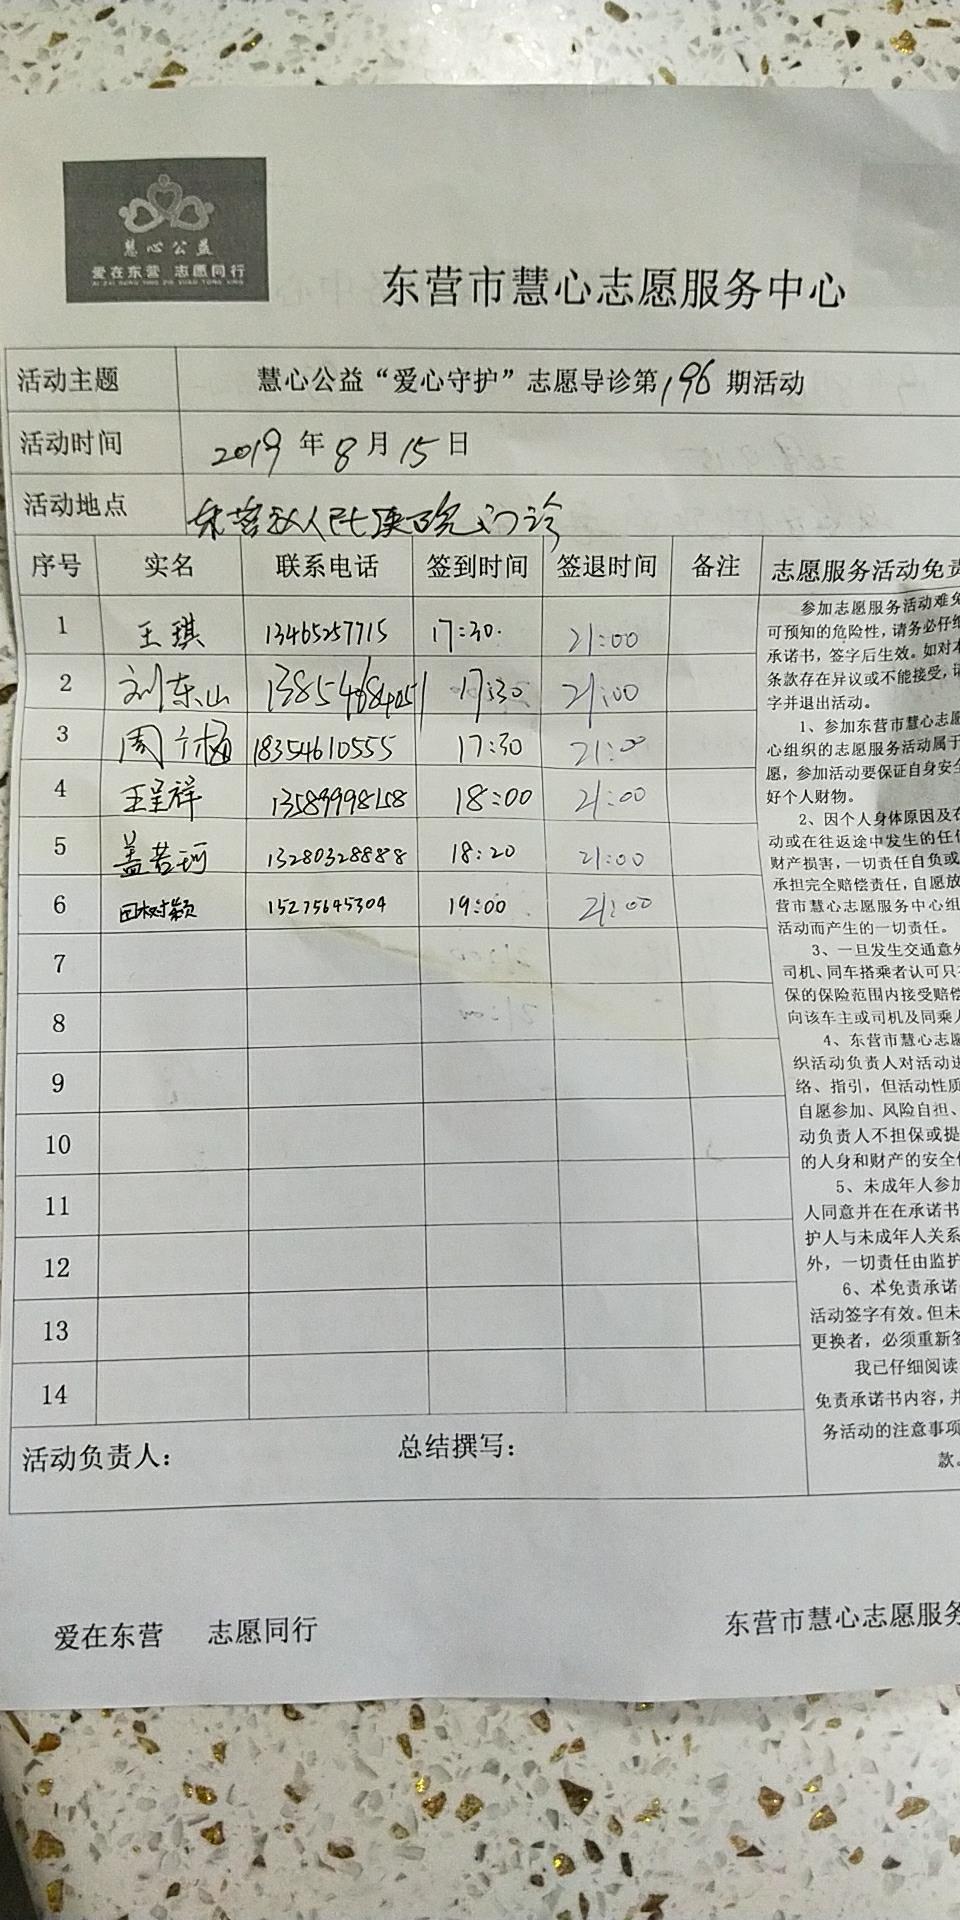 慧心公益
爱在东营 志愿同行
AI ZAI DONG YING ZHI YUAN TONG XING
东营市慧心志愿服务中心
活动主题 慧心公益“爱心守护”志愿导诊第196期活动
活动时间 2019年8月15日
活动地点 东营 人民医院门诊
序号 实名 联系电话 签到时间 签退时间 备注 志愿服务活动免责
1 王琪 13465257715 17:30 21:00
2 刘东山 17:30 21:00
3 周 梅 18354610555 17:30 21:00
4 王呈祥 13589998158 18:00 21:00
5 盖若珂 13280328888 18:20 21:00
6 田树颖 15275645304 19:00 21:00
7
8
9
10
11
12
13
14
参加志愿服务活动难免
可预知的危险性，请务必仔细
承诺书，签字后生效。如对本
条款存在异议或不能接受，请
字并退出活动。
1、参加东营市慧心志愿
心组织的志愿服务活动属于
愿，参加活动要保证自身安全
好个人财物。
2、因个人身体原因及在
动或在往返途中发生的任何
财产损害，一切责任自负或
承担完全赔偿责任，自愿放
营市慧心志愿服务中心组
活动而产生的一切责任。
3、一旦发生交通意外
司机、同车搭乘者认可只在
保的保险范围内接受赔偿
向该车主或司机及同乘人
4、东营市慧心志愿
织活动负责人对活动进
络、指引，但活动性质
自愿参加、风险自担、
动负责人不担保或提
的人身和财产的安全
5、未成年人参加
人同意并在在承诺书
护人与未成年人关系
外，一切责任由监护
6、本免责承诺
活动签字有效。但未
更换者，必须重新签
我已仔细阅读
免责承诺书内容，并
务活动的注意事项
款。
活动负责人： 总结撰写：
爱在东营 志愿同行 东营市慧心志愿服务